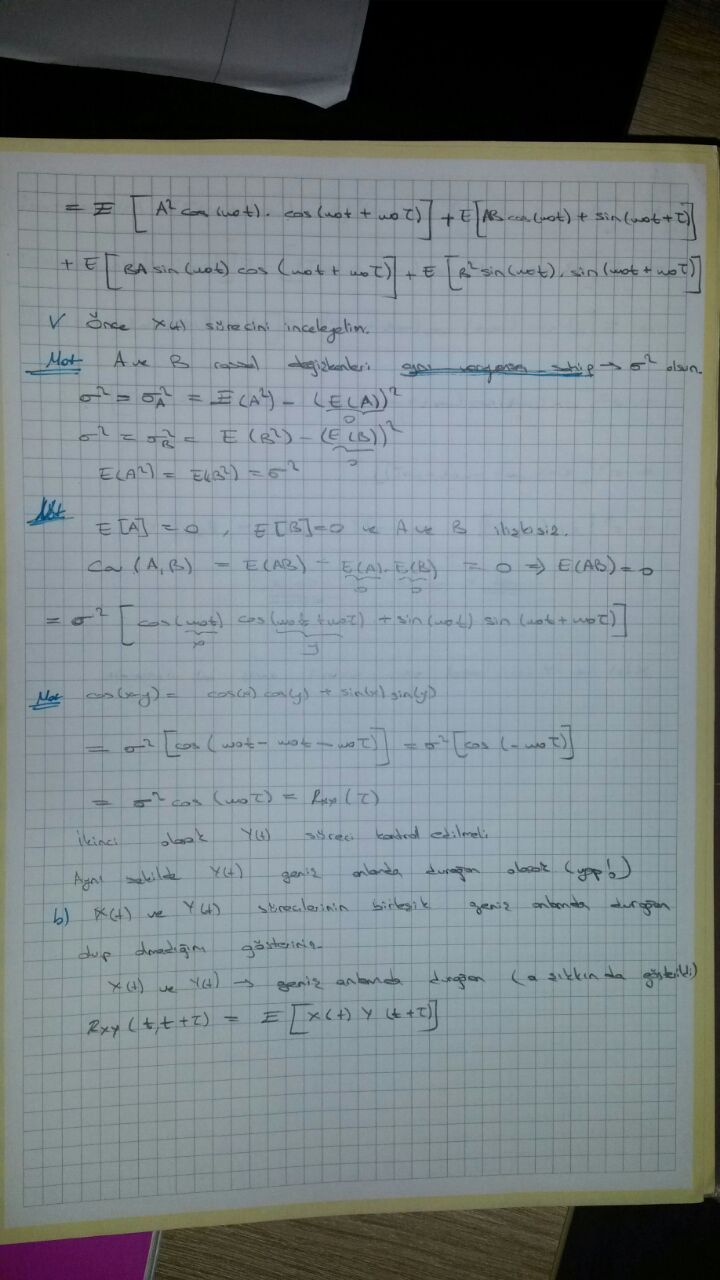 = E [A² cos(ω₀t). cos(ω₀t + ω₀τ)] + E[AB cos(ω₀t) + sin(ω₀t+τ)]
+ E [BA sin(ω₀t) cos (ω₀t + ω₀τ)] + E [B² sin(ω₀t). sin(ω₀t + ω₀τ)]
√ Önce X(t) sürecini inceleyelim.
Not A ve B rassal değişkenleri aynı varyansa sahip → σ² olsun.
σ² = σ_A² = E(A²) - (E(A))²
0
σ² = σ_B² = E(B²) - (E(B))²
0
E(A²) = E(B²) = σ²
Not
E[A] = 0 , E[B]=0 ve A ve B ilişkisiz.
Cov (A,B) = E(AB) - E(A). E(B) = 0 ⇒ E(AB) = 0
0 0
= σ² [cos(ω₀t) cos(ω₀t + ω₀τ) + sin(ω₀t) sin(ω₀t + ω₀τ)]
x y
Not cos(x-y) = cos(x) cos(y) + sin(x) sin(y)
= σ² [cos (ω₀t - ω₀t - ω₀τ)] = σ² [cos (-ω₀τ)]
= σ² cos(ω₀τ) = Rxx (τ)
İkinci olarak Y(t) süreci kontrol edilmeli
Aynı şekilde Y(t) geniş anlamda durağan olacak (yap!)
b) X(t) ve Y(t) süreçlerinin birleşik geniş anlamda durağan
olup olmadığını gösteriniz.
X(t) ve Y(t) → geniş anlamda durağan (a şıkkında gösterildi)
Rxy (t,t+τ) = E [X(t) Y (t+τ)]